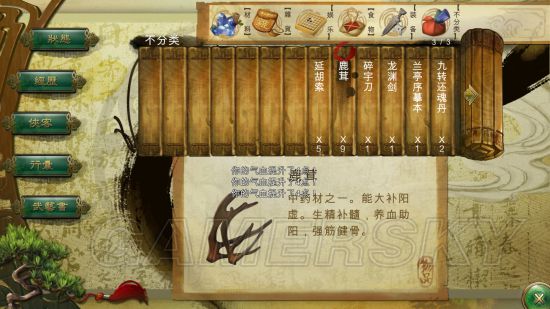 狀態
經歷
俠客
行囊
武藝書
材料
雜貨
娱乐
食物
装备
不分类
不分类
3/3
延胡索
X5
鹿茸
X9
碎宇刀
X1
龙渊剑
X1
兰亭序摹本
X1
九转还魂丹
X2
鹿茸
你的气血提升了4点！
你的气血提升了4点！
你的气血提升了4点！
中药材之一。能大补阳
虚。生精补髓，养血助
阳，强筋健骨。
物品
GAMERSKY